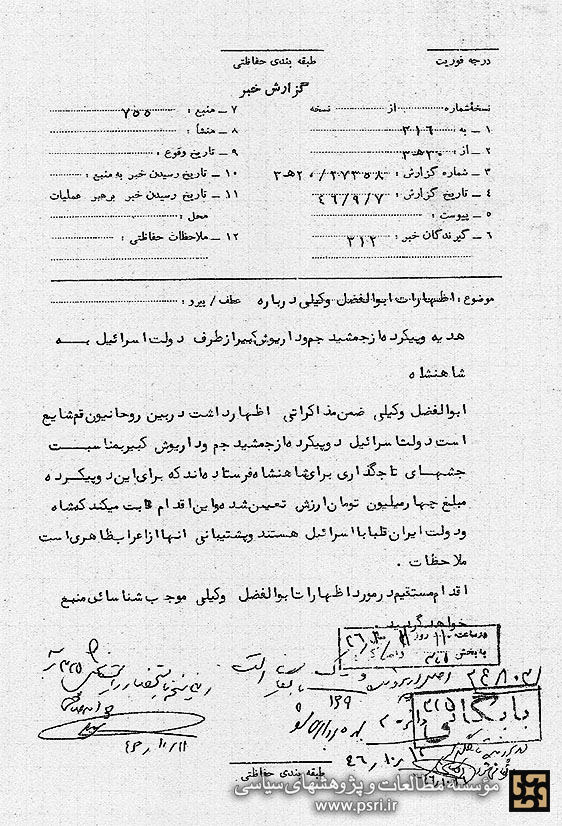 درجه فوریت
طبقه بندی حفاظتی
گزارش خبر
نسخهٔ شماره از نسخه
۱ ـ به ۳۱۶
۲ ـ از : ۳۰ هـ ۳
۳ ـ شماره گزارش : ۲۰/۲۷۳۵۸ هـ ۳
۴ ـ تاریخ گزارش : ۴۶/۹/۷
۵ ـ پیوست :
۶ ـ گیرندگان خبر : ۳۱۲
۷ ـ منبع : ۷۵۵
۸ ـ منشأ :
۹ ـ تاریخ وقوع :
۱۰ ـ تاریخ رسیدن خبر به منبع :
۱۱ ـ تاریخ رسیدن خبر برهبر عملیات
محل :
۱۲ ـ ملاحظات حفاظتی :
موضوع : اظهارات ابوالفضل وکیلی درباره عطف / پیرو :
هدیه دو پیکره از جمشید جم و داریوش کبیر از طرف دولت اسرائیل به
شاهنشاه
ابوالفضل وکیلی ضمن مذاکراتی اظهار داشت در بین روحانیون قم شایع
است دولت اسرائیل دو پیکره از جمشید جم و داریوش کبیر بمناسبت
جشنهای تاجگذاری برای شاهنشاه فرستاده اند که برای این دو پیکره
مبلغ چهار میلیون تومان ارزش تعیین شده و این اقدام ثابت میکند که شاه
و دولت ایران قلبا با اسرائیل هستند و پشتیبانی آنها از اعراب ظاهری است
ملاحظات .
اقدام مستقیم در مورد اظهارات ابوالفضل وکیلی موجب شناسائی منبع
خواهد گردید .
در ساعت ۱۱ روز
به بخش
بایگانی
۴۶/۱۰/۱۲
۴۶/۱۰/۱۱
طبقه بندی حفاظتی
مؤسسه مطالعات و پژوهشهای سیاسی
www.psri.ir